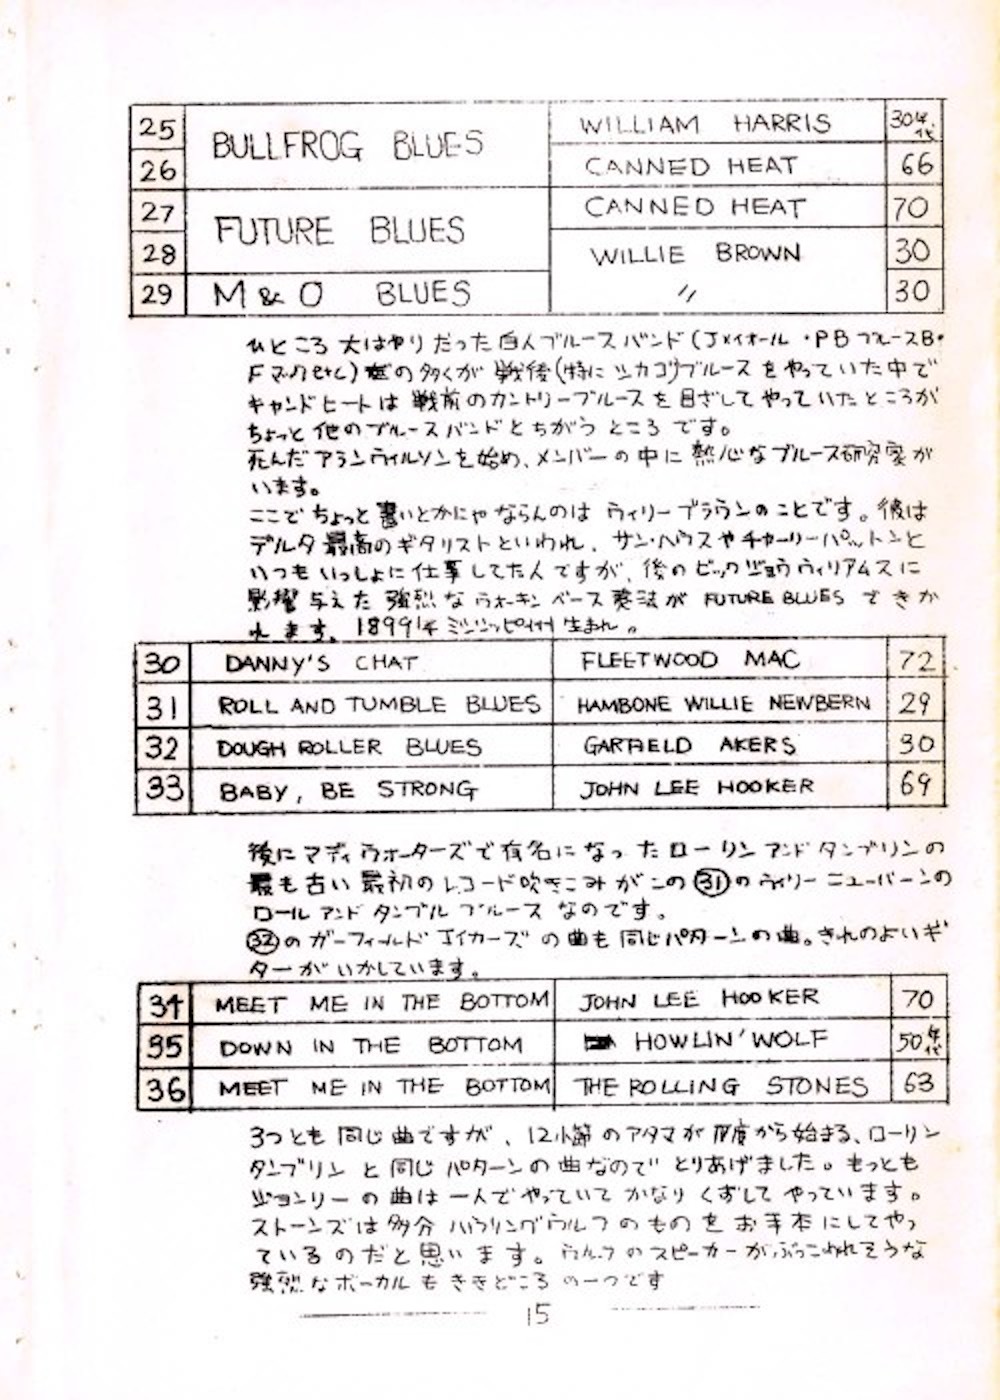 25 BULLFROG BLUES WILLIAM HARRIS 30年代
26 CANNED HEAT 66
27 FUTURE BLUES CANNED HEAT 70
28 WILLIE BROWN 30
29 M & O BLUES 〃 30
ひところ 大はやりだった白人ブルースバンド(Jメイオール・PBブルースB・
Fマックetc)の多くが 戦後(特にシカゴ)ブルースをやっていた中で
キャンドヒートは 戦前のカントリーブルースを目ざしてやっていたところが
ちょっと他のブルースバンドとちがうところです。
死んだアランウィルソンを始め、メンバーの中に熱心なブルース研究家が
います。
ここでちょっと書いとかにゃならんのは ウィリーブラウンのことです。彼は
デルタ最高のギタリストといわれ、サン・ハウスやチャーリーパットンと
いつもいっしょに仕事してた人ですが、後のビックジョウウィリアムスに
影響与えた強烈なウォーキンベース奏法が FUTURE BLUES できか
れます。1899年ミシシッピィ州生まれ。
30 DANNY'S CHAT FLEETWOOD MAC 72
31 ROLL AND TUMBLE BLUES HAMBONE WILLIE NEWBERN 29
32 DOUGH ROLLER BLUES GARFIELD AKERS 30
33 BABY, BE STRONG JOHN LEE HOOKER 69
後にマディウォーターズで有名になったローリンアンドタンブリンの
最も古い最初のレコード吹きこみがこの㉛のウィリーニューバーンの
ロールアンドタンブルブルースなのです。
㉜のガーフィールドエイカーズの曲も同じパターンの曲。きれのよいギ
ターがいかしています。
34 MEET ME IN THE BOTTOM JOHN LEE HOOKER 70
35 DOWN IN THE BOTTOM HOWLIN' WOLF 50年代
36 MEET ME IN THE BOTTOM THE ROLLING STONES 63
3つとも同じ曲ですが、12小節のアタマが 度から始まる、ローリン
タンブリンと同じパターンの曲なのでとりあげました。もっとも
ジョンリーの曲は一人でやっていてかなりくずしてやっています。
ストーンズは多分ハウリングウルフのものをお手本にしてやっ
ているのだと思います。ウルフのスピーカーがぶっこわれそうな
強烈なボーカルもききどころの一つです
15